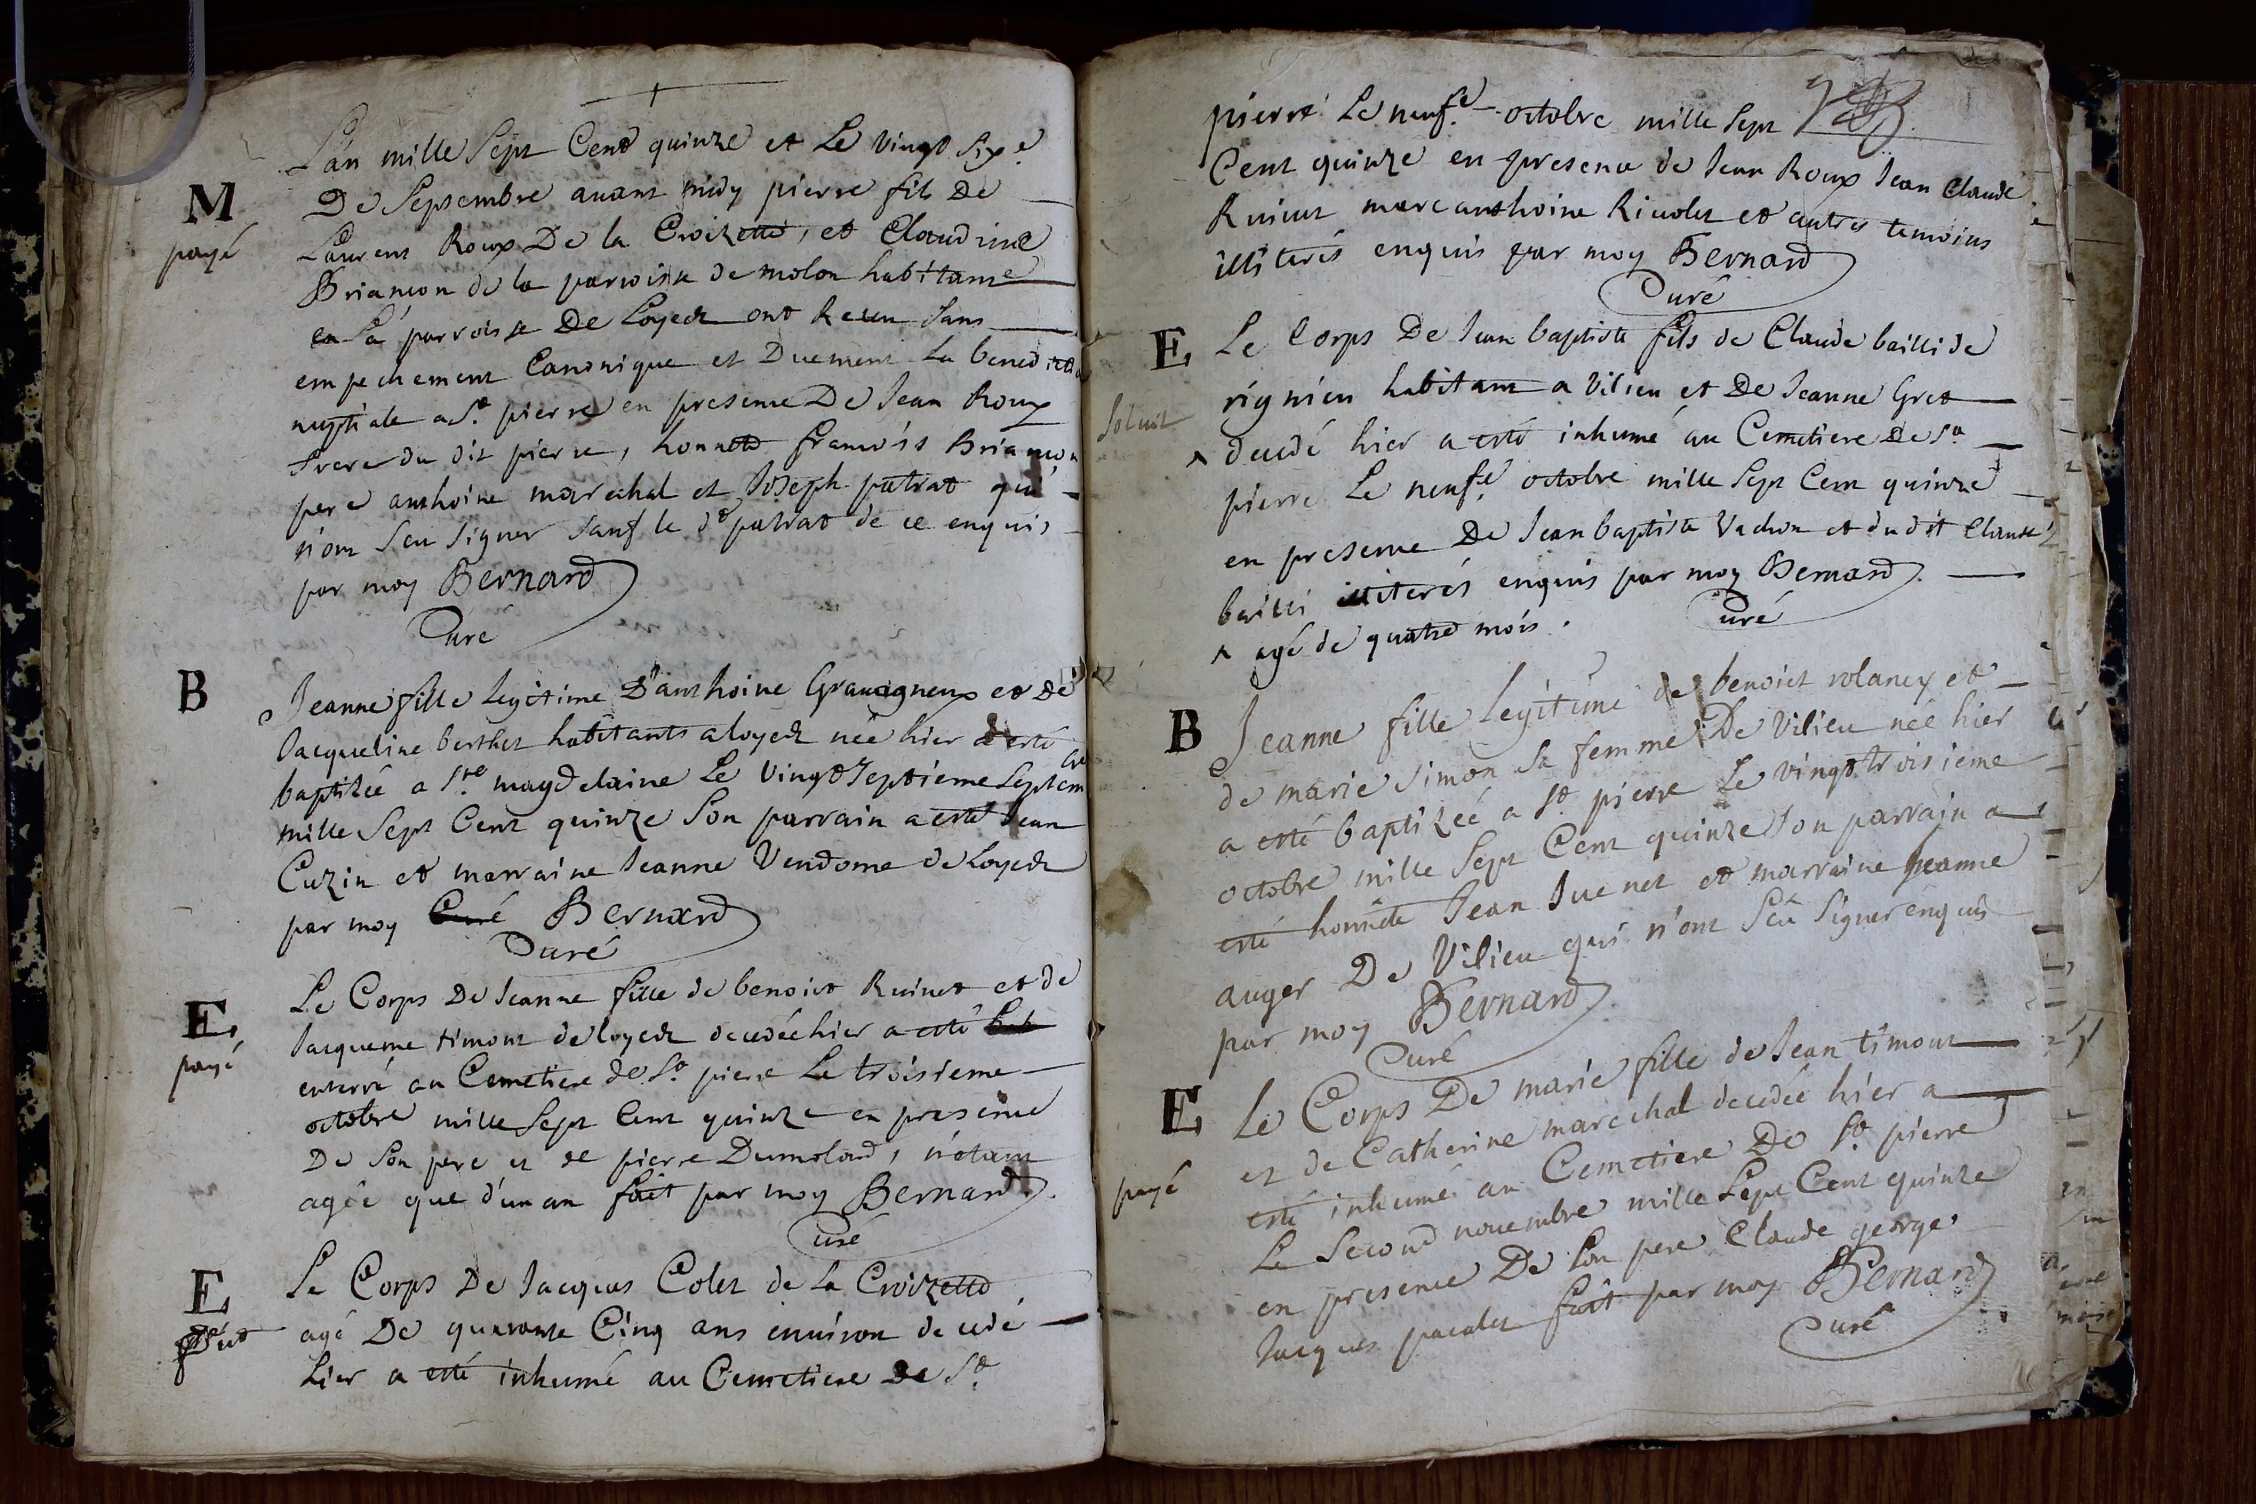 L'an mille Sept Cent quinze et Le vingt Six.e
M De Septembre avant midy pierre fils De
payé Laurent Roux De la Croizette, et Claudine
Briançon de la parroisse de molon habitante
en la parroisse De Loyedz ont Receu Sans
empechement Canonique et Duement La benedicti
nuptiale a St. pierre en presence De Jean Roux
frere du dit pierre, honnete francois Briançon
pere anthoine marechal et Joseph patrat qui
n'ont Sceu Signer Sauf le dt patrat de ce enquis
par moy Bernard
Curé
B Jeanne fille legitime D'anthoine Gravagneux et De
Jacqueline berthet habitants a loyedz née hier a esté
baptizée a Ste. magdelaine Le vingt Septieme Septembre
mille Sept Cent quinze Son parrain a esté Jean
Cuzin et marraine Jeanne Vendome de Loyedz
par moy Curé Bernard
Curé
E Le Corps De Jeanne fille de benoict Ruinet et de
payé Jacqueme timont de loyedz decedée hier a esté
enterré au Cemetiere de St. pierre Le troisieme
octobre mille Sept Cent quinze en presence
De Son pere et de pierre Dumolard, n'etant
agée que d'un an fait par moy Bernard
Curé
E Le Corps De Jacques Colet de La Croizette
agé De quarante Cinq ans environ decedé
hier a esté inhumé au Cemetiere De St.
pierre Le neuf.e octobre mille Sept
Cent quinze en presence de Jean Roux Jean Claude
Ruinet marcanthoine Ricolet et autres temoins
illiterés enquis par moy Bernard
Curé
E Le Corps De Jean baptiste fils de Claude bailli de
rignieu habitant a Vilieu et De Jeanne Gret
Soluit
^ decedé hier a esté inhumé au Cemetiere De St.
pierre Le neuf.e octobre mille Sept Cent quinze
en presence De Jean baptiste Vachon et dudit Claude
bailli illiterés enquis par moy Bernard.
Curé
^ agé de quatre mois.
B Jeanne fille Legitime de benoict volancy et
de marie Simon Sa femme De Vilieu née hier
a esté baptizée a St pierre Le vingt troisieme
octobre mille Sept Cent quinze Son parrain a
esté honnete Jean Juenet et marraine Jeanne
auger De Vilieu qui n'ont Sceu Signer enquis
par moy Bernard
Curé
E Le Corps De marie fille de Jean timont
et de Catherine marechal decedée hier a
payé esté inhumé au Cemetiere De St pierre
Le Second novembre mille Sept Cent quinze
en presence De Son pere Claude george
Jacques pacalet fait par moy Bernard
Curé